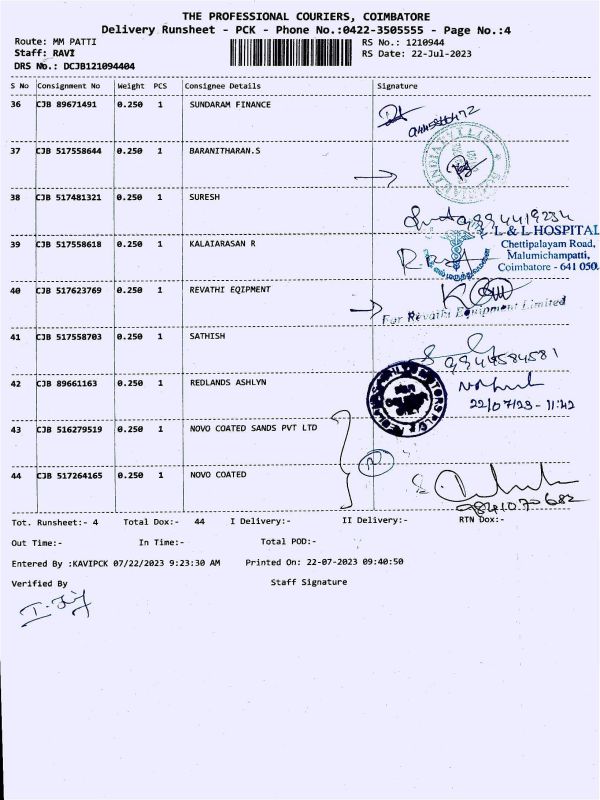 THE PROFESSIONAL COURIERS, COIMBATORE
Delivery Runsheet - PCK - Phone No.:0422-3505555 - Page No.:4
Route: MM PATTI
RS No.: 1210944
Staff: RAVI
RS Date: 22-Jul-2023
DRS No.: DCJB121094404
S No Consignment No Weight PCS Consignee Details Signature
36 CJB 89671491 0.250 1 SUNDARAM FINANCE
37 CJB 517558644 0.250 1 BARANITHARAN.S
38 CJB 517481321 0.250 1 SURESH
L & L HOSPITAL
Chettipalayam Road,
Malumichampatti,
Coimbatore - 641 050.
39 CJB 517558618 0.250 1 KALAIARASAN R
40 CJB 517623769 0.250 1 REVATHI EQIPMENT
For Revathi Equipment Limited
41 CJB 517558703 0.250 1 SATHISH
9941584581
42 CJB 89661163 0.250 1 REDLANDS ASHLYN
22/07/23 - 11:42
43 CJB 516279519 0.250 1 NOVO COATED SANDS PVT LTD
44 CJB 517264165 0.250 1 NOVO COATED
9841070682
Tot. Runsheet:- 4 Total Dox:- 44 I Delivery:- II Delivery:- RTN Dox:-
Out Time:- In Time:- Total POD:-
Entered By :KAVIPCK 07/22/2023 9:23:30 AM Printed On: 22-07-2023 09:40:50
Verified By Staff Signature